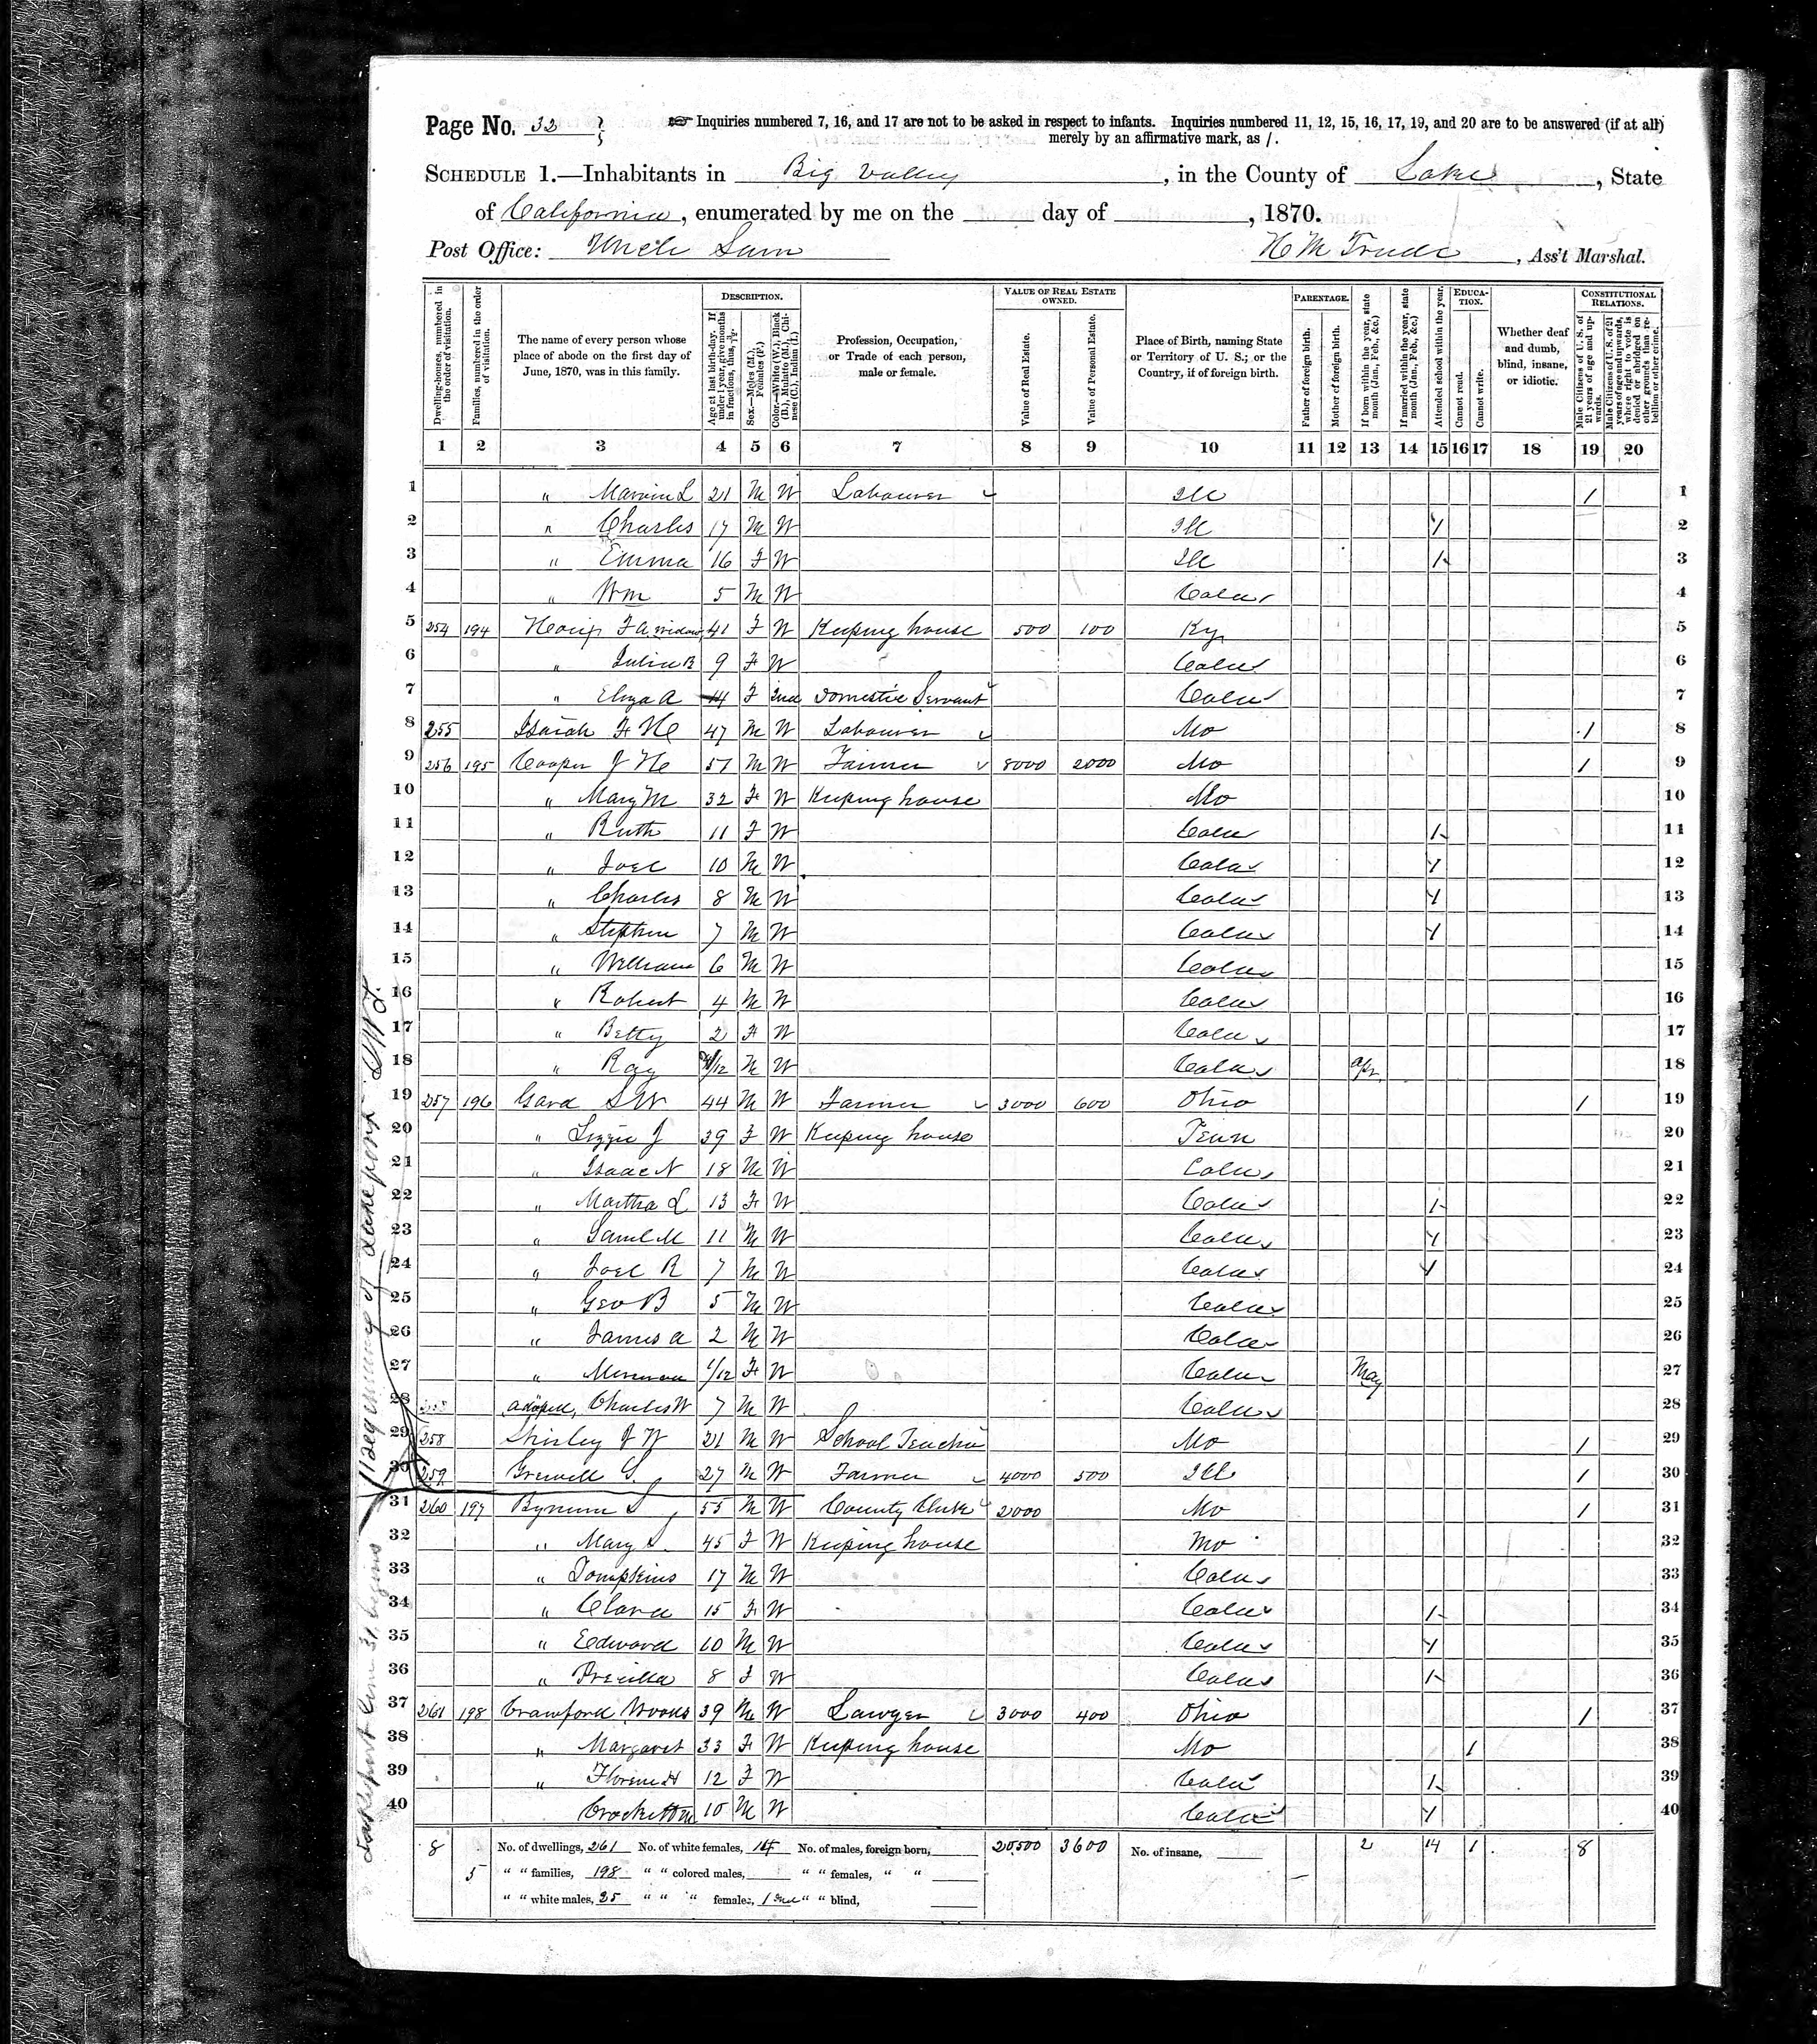 Page No. 32
☞ Inquiries numbered 7, 16, and 17 are not to be asked in respect to infants. Inquiries numbered 11, 12, 15, 16, 17, 19, and 20 are to be answered (if at all)
merely by an affirmative mark, as /.
SCHEDULE 1.—Inhabitants in Big Valley, in the County of Lake, State
of California, enumerated by me on the day of , 1870.
Post Office: Uncle Sam
H M , Ass't Marshal.
Dwelling-houses, numbered in the order of visitation.
Families, numbered in the order of visitation.
The name of every person whose place of abode on the first day of June, 1870, was in this family.
DESCRIPTION.
Age at last birth-day. If under 1 year, give months in fractions, thus, 3/12.
Sex.—Males (M.), Females (F.)
Color.—White (W.), Black (B.), Mulatto (M.), Chinese (C.), Indian (I.)
Profession, Occupation, or Trade of each person, male or female.
VALUE OF REAL ESTATE OWNED.
Value of Real Estate.
Value of Personal Estate.
Place of Birth, naming State or Territory of U. S.; or the Country, if of foreign birth.
PARENTAGE.
Father of foreign birth.
Mother of foreign birth.
If born within the year, state month (Jan., Feb., &c.)
If married within the year, state month (Jan., Feb., &c.)
Attended school within the year.
EDUCATION.
Cannot read.
Cannot write.
Whether deaf and dumb, blind, insane, or idiotic.
CONSTITUTIONAL RELATIONS.
Male Citizens of U. S. of 21 years of age and upwards.
Male Citizens of U. S. of 21 years of age and upwards, whose right to vote is denied or abridged on other grounds than rebellion or other crime.
1 2 3 4 5 6 7 8 9 10 11 12 13 14 15 16 17 18 19 20
1 " Marvin L 21 M W Labourer Ill / 1
2 " Charles 17 M W Ill / 2
3 " Emma 16 F W Ill / 3
4 " Wm 5 M W Cala 4
5 254 194 F A widow 41 F W Keeping house 500 100 Ky 5
6 " Julia B 9 F W Cala 6
7 " Eliza A 14 F Ind Domestic Servant Cala 7
8 255 Isaiah F H 47 M W Labourer Mo / 8
9 256 195 Cooper J H 57 M W Farmer 8000 2000 Mo / 9
10 " Mary M 32 F W Keeping house Mo 10
11 " Ruth 11 F W Cala / 11
12 " Joel 10 M W Cala / 12
13 " Charles 8 M W Cala / 13
14 " Stephen 7 M W Cala / 14
15 " William 6 M W Cala 15
16 " Robert 4 M W Cala 16
17 " Betty 2 F W Cala 17
18 " Ray /12 M W Cala Apr. 18
19 257 196 Gard S W 44 M W Farmer 3000 600 Ohio / 19
20 " Lizzie J 39 F W Keeping house Tenn 20
21 " Isaac N 18 M W Cala 21
22 " Martha L 13 F W Cala / 22
23 " Saml M 11 M W Cala / 23
24 " Joel R 7 M W Cala / 24
25 " Geo B 5 M W Cala 25
26 " James A 2 M W Cala 26
27 " 1/12 F W Cala May 27
28 adopted, Charles W 7 M W Cala 28
29 258 Shirley J W 21 M W School Teacher Mo / 29
30 259 G. 27 M W Farmer 4000 500 Ill / 30
31 260 197 Bynum S 55 M W County Clerk 2000 Mo / 31
32 " Mary S. 45 F W Keeping house Mo 32
33 " Tompkins 17 M W Cala 33
34 " Clara 15 F W Cala / 34
35 " Edward 10 M W Cala / 35
36 " Precilla 8 F W Cala / 36
37 261 198 Crawford Woods 39 M W Lawyer 3000 400 Ohio / 37
38 " Margaret 33 F W Keeping house Mo / 38
39 " Floren H 12 F W Cala / 39
40 Crockett M 10 M W Cala / 40
8 No. of dwellings, 261 No. of white females, 14 No. of males, foreign born, 20,500 3600 No. of insane, 2 14 1 8
5 " " families, 198 " " colored males, " " females, " "
" " white males, 25 " " " females, 1 Ind " " blind,
Lakeport line 31 begins